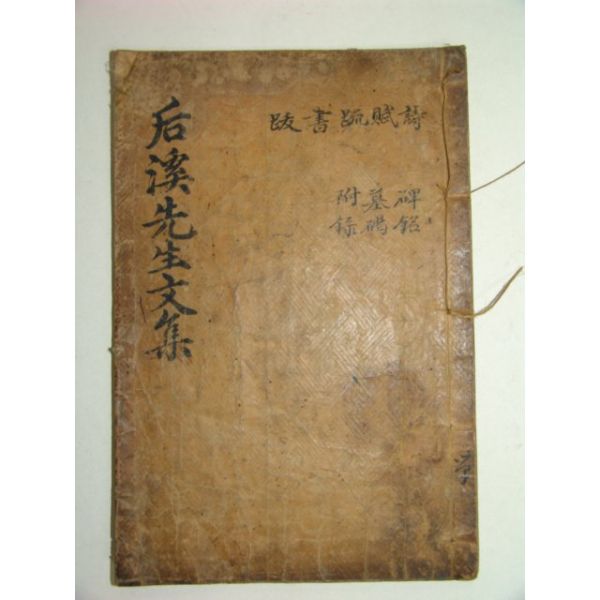 詩賦疏書跋
碑銘
墓碣
附錄
后溪先生文集